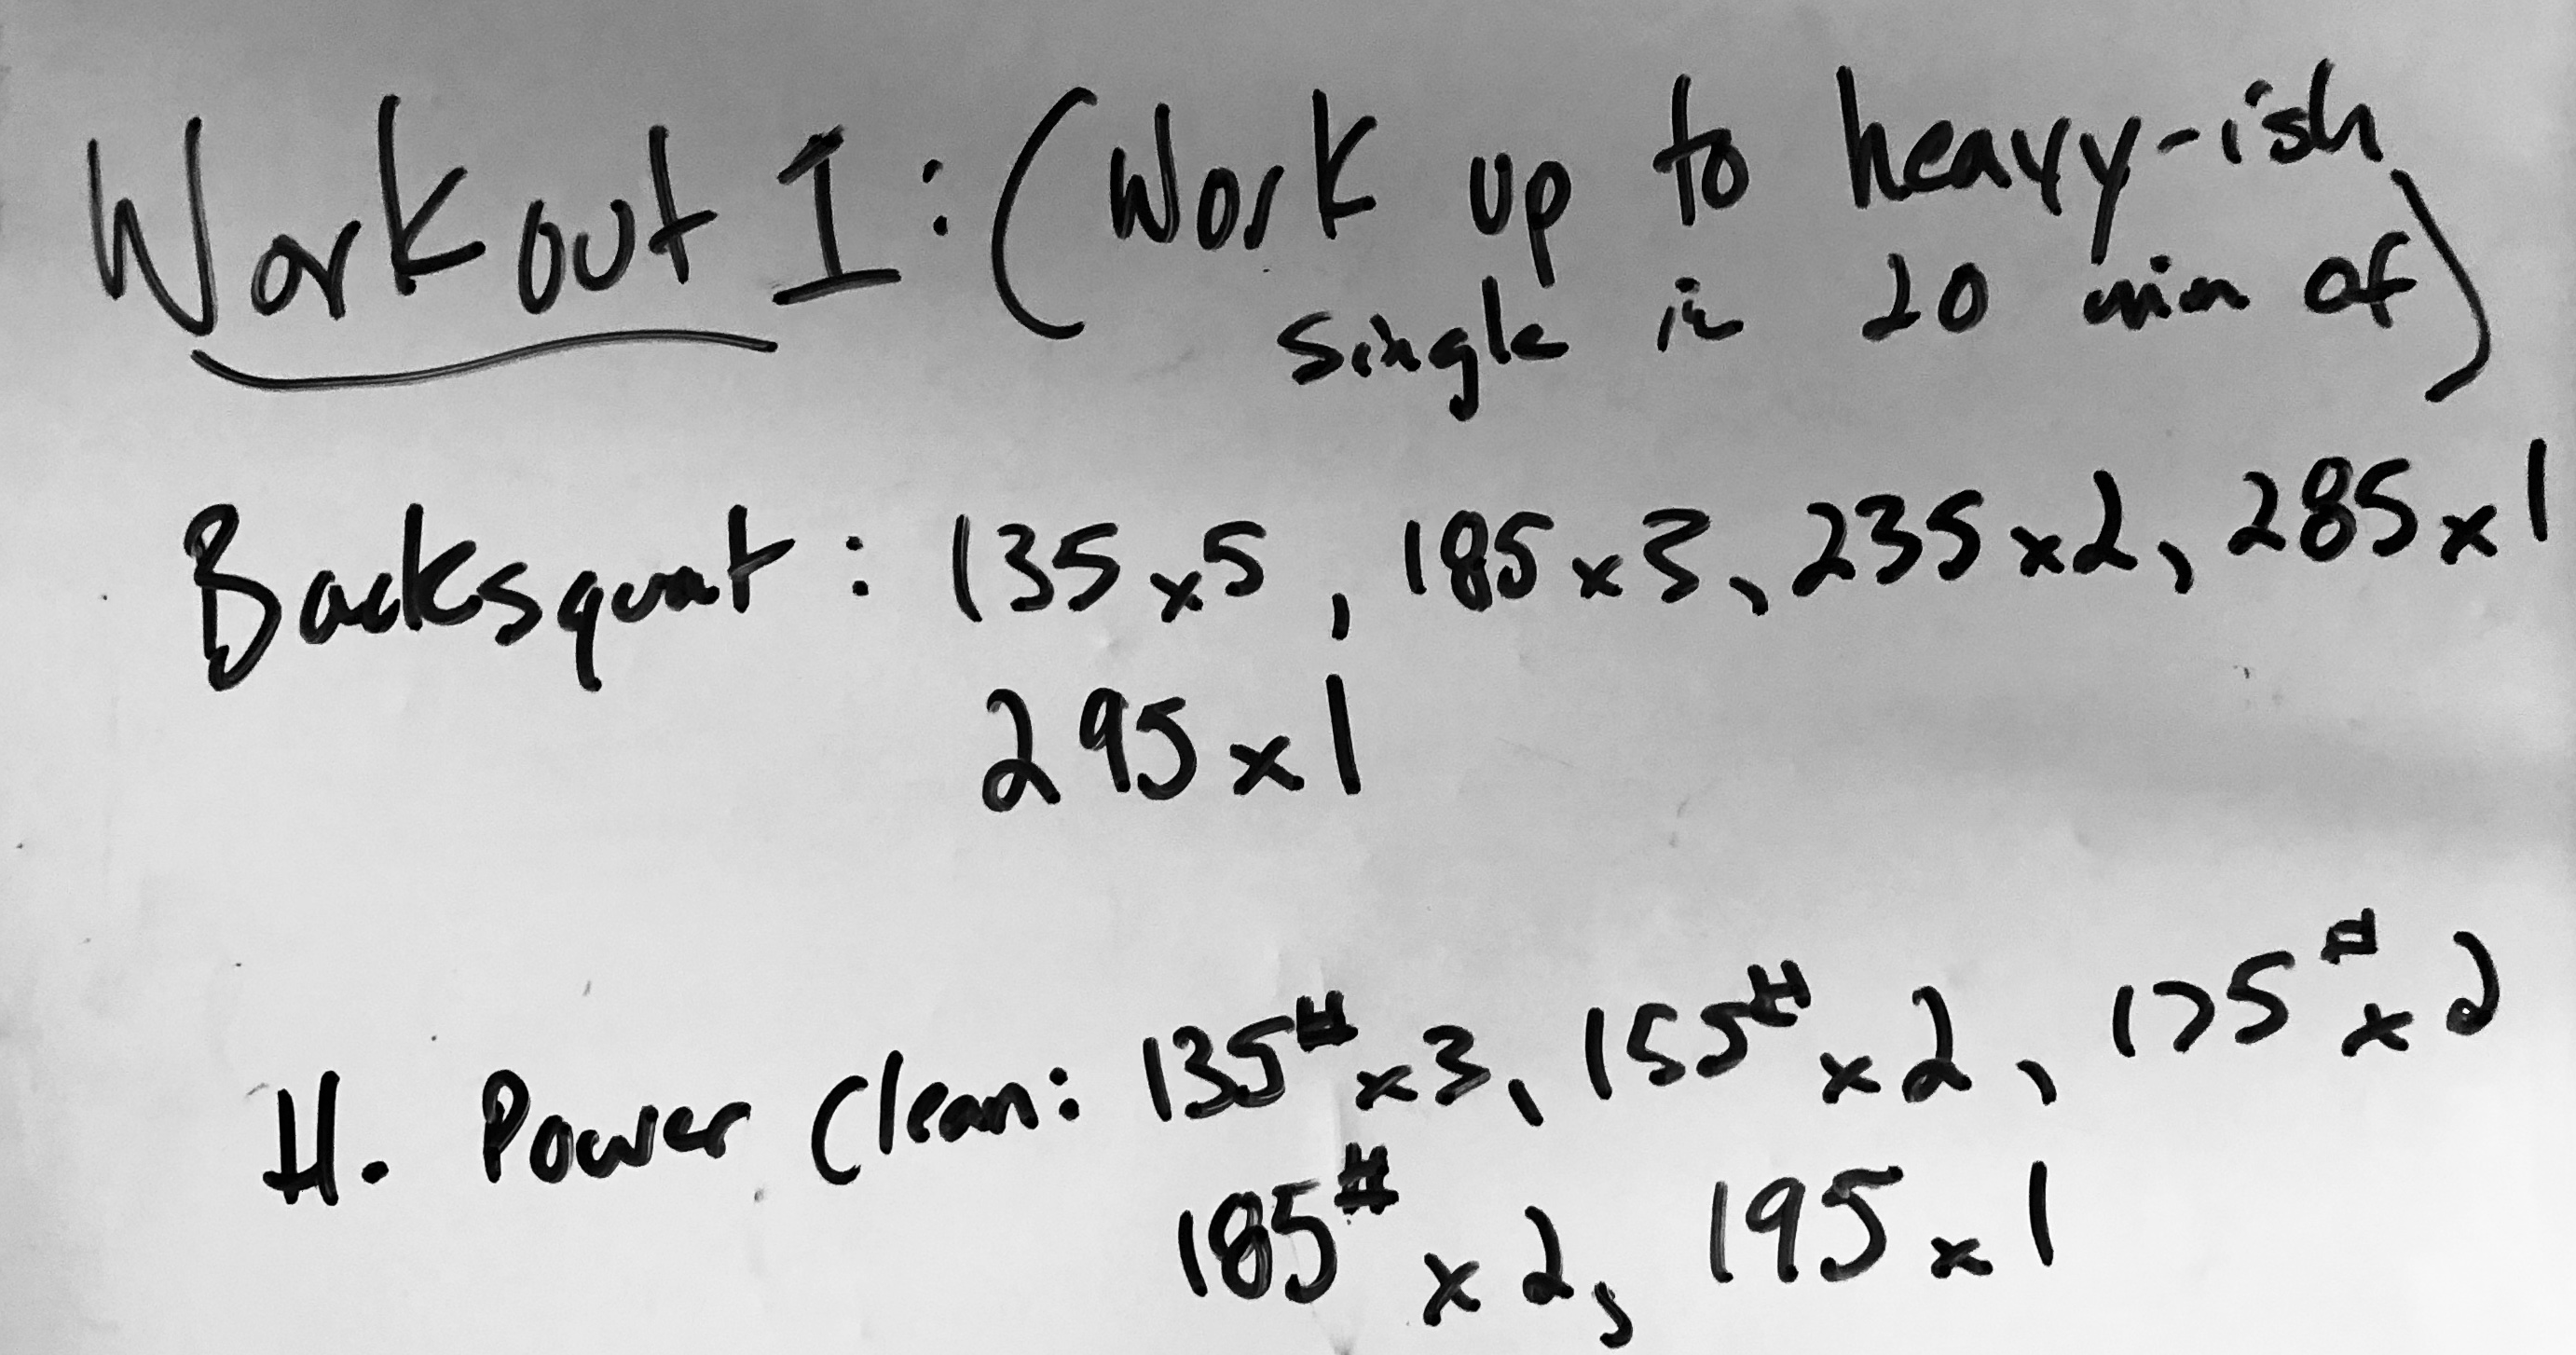 Workout I: (Work up to heavy-ish
single in 20 min of)
Backsquat: 135x5, 185x3, 235x2, 285x1
295x1
H. Power Clean: 135#x3, 155#x2, 175#x2
185#x2, 195x1